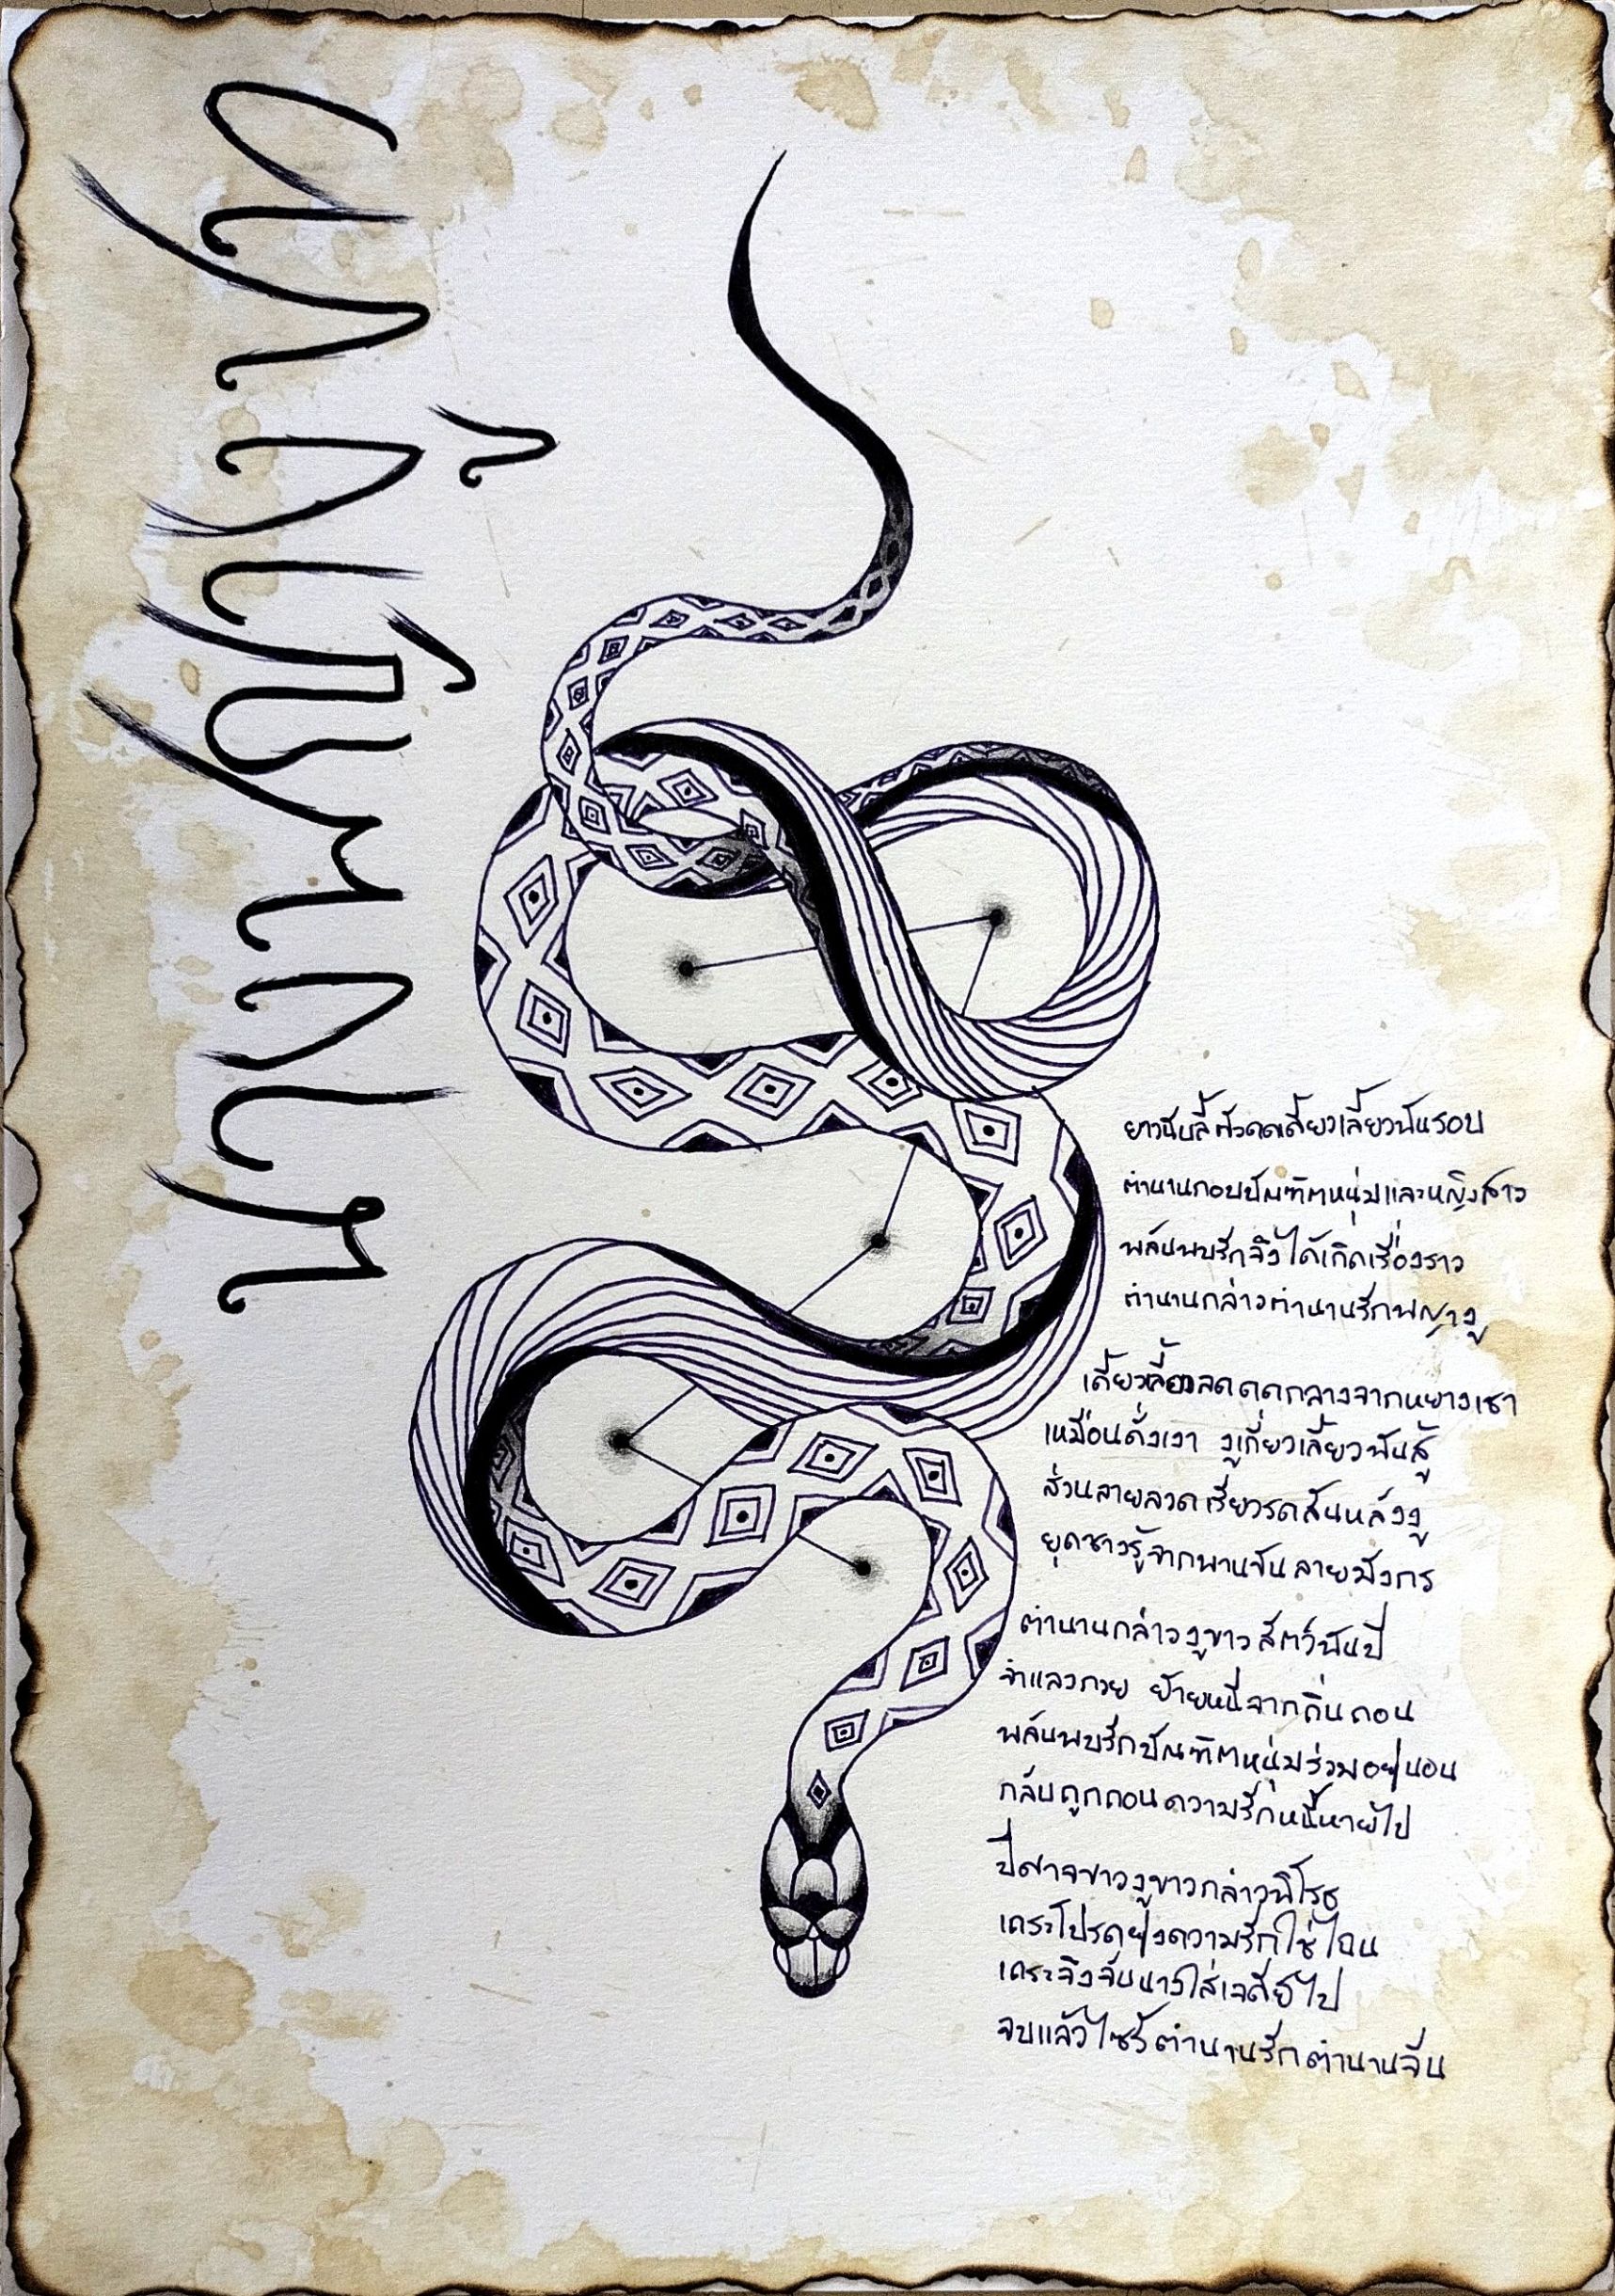 ยาวนับลี้ตัวคดเคี้ยวเลี้ยวพันรอบ
ตำนานกอบบัณฑิตหนุ่มและหญิงสาว
พลันพบรักจึงได้เกิดเรื่องราว
ตำนานกล่าวตำนานรักพญางู
เคี้ยวลี้ลดคดกลางจากหยางเชา
เหมือนดั่งเงา งูเกี่ยวเลี้ยวพันสู้
ส่วนลายลวดเรี่ยวรดสันหลังงู
ยุดชาวรู้จากพานจันลายมังกร
ตำนานกล่าวงูขาวสัตว์พันปี
จำแลงกาย ย้ายหนีจากถิ่นถอน
พลันพบรักบัณฑิตหนุ่มร่วมอยู่นอน
กลับถูกถอนความรักหนี้หายไป
ปีศาจขาวงูขาวกล่าวพิโรธ
เคราะโปรดยุ่งความรักใช่ไฉน
เคราะจึงจับนางใส่เจดีย์ไป
จบแล้วไซร้ตำนานรักตำนานจีน